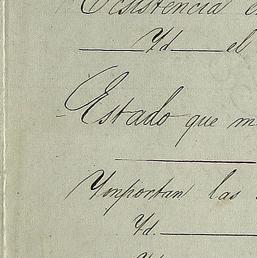 Ecsistencia e
Yd el
Estado que m
Ymportan las
Yd.
Yd.